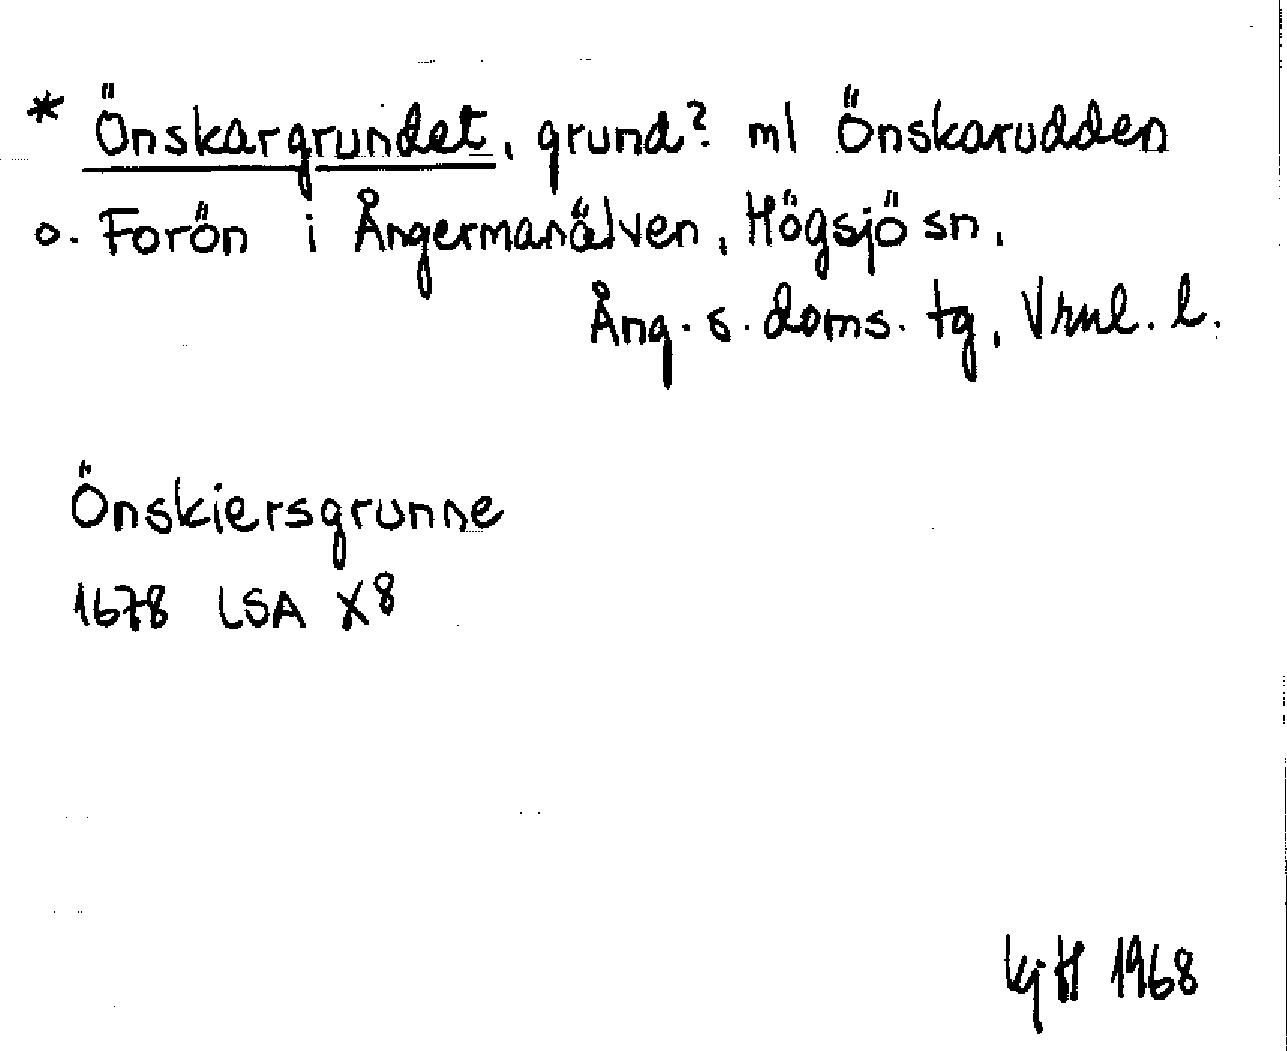 * Önskargrundet, grund? ml Önskarudden
o. Forön i Ångermanälven, Högsjö sn,
Ång. s. doms. tg, Vrnl. l.
Önskiersgrunne
1678 LSA X8
KjH 1968